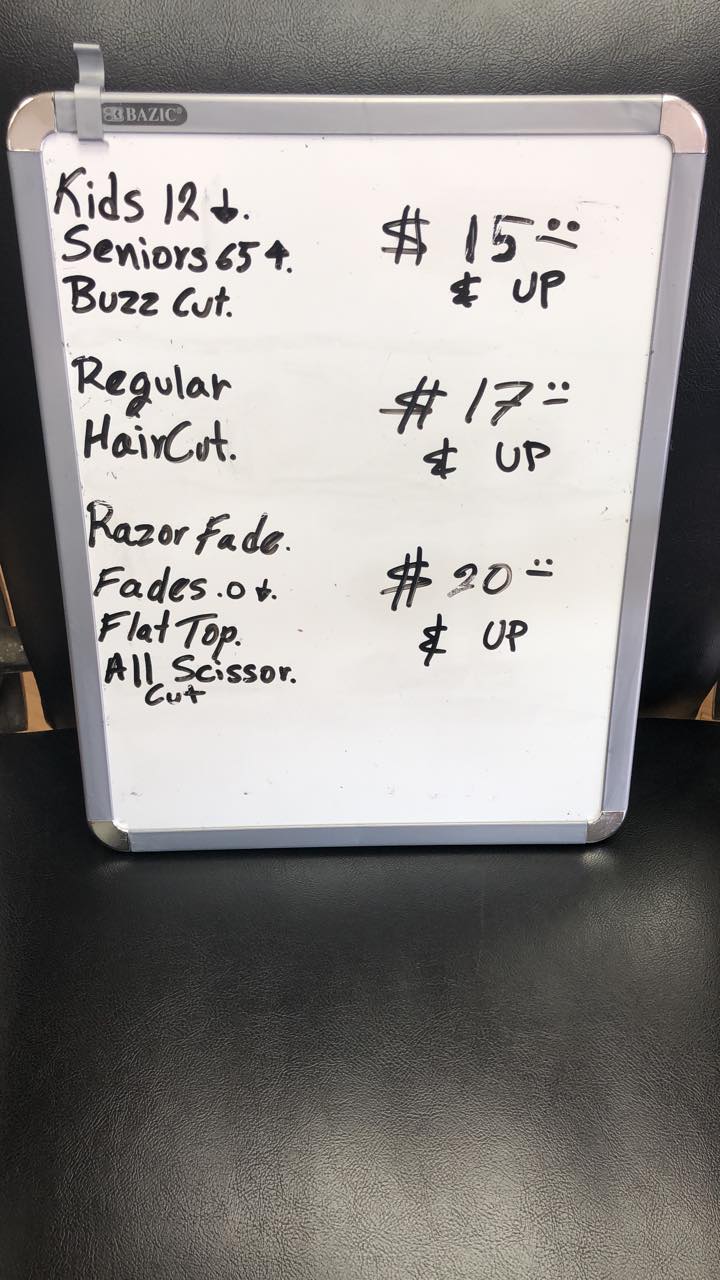 BAZIC
Kids 12 ↓.
Seniors 65 ↑.
Buzz Cut.
$ 15
& UP
Regular
HairCut.
$ 17
& UP
Razor Fade.
Fades .0 ↓.
Flat Top.
All Scissor.
Cut
$ 20
& UP